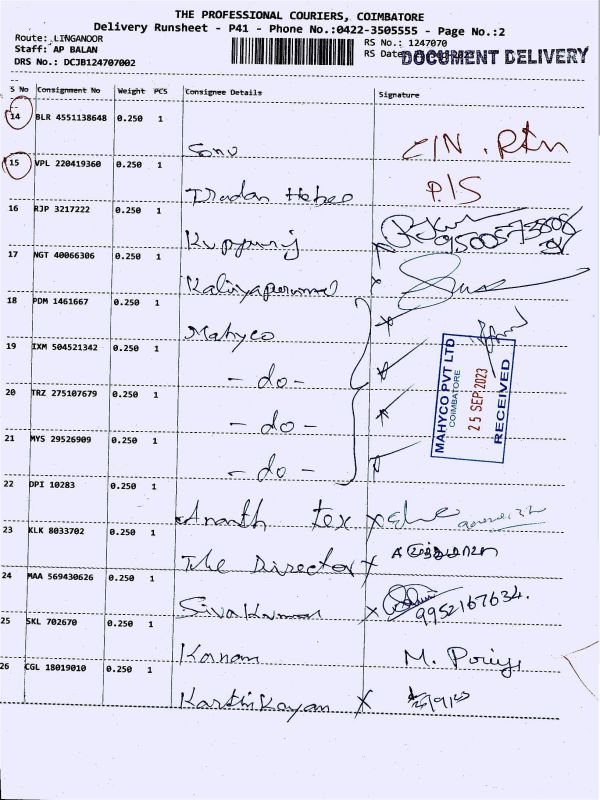 THE PROFESSIONAL COURIERS, COIMBATORE
Delivery Runsheet - P41 - Phone No.:0422-3505555 - Page No.:2
Route: LINGANOOR
RS No.: 1247070
Staff: AP BALAN
RS Date
DOCUMENT DELIVERY
DRS No.: DCJB124707002
S No Consignment No Weight PCS Consignee Details Signature
14 BLR 4551138648 0.250 1
Sonu
15 VPL 220419360 0.250 1
P/S
16 RJP 3217222 0.250 1
17 NGT 40066306 0.250 1
Kaliyaperumal
18 PDM 1461667 0.250 1
Mahyco
19 IXM 504521342 0.250 1
- do -
20 TRZ 275107679 0.250 1
- do -
21 MYS 29526909 0.250 1
- do -
MAHYCO PVT LTD
COIMBATORE
25 SEP 2023
RECEIVED
22 DPI 10283 0.250 1
Ananth Tex x
23 KLK 8033702 0.250 1
The Director x
24 MAA 569430626 0.250 1
Sivakumar x
9952167634.
25 SKL 702670 0.250 1
Kannan M.
26 CGL 18019010 0.250 1
Karthikayan x